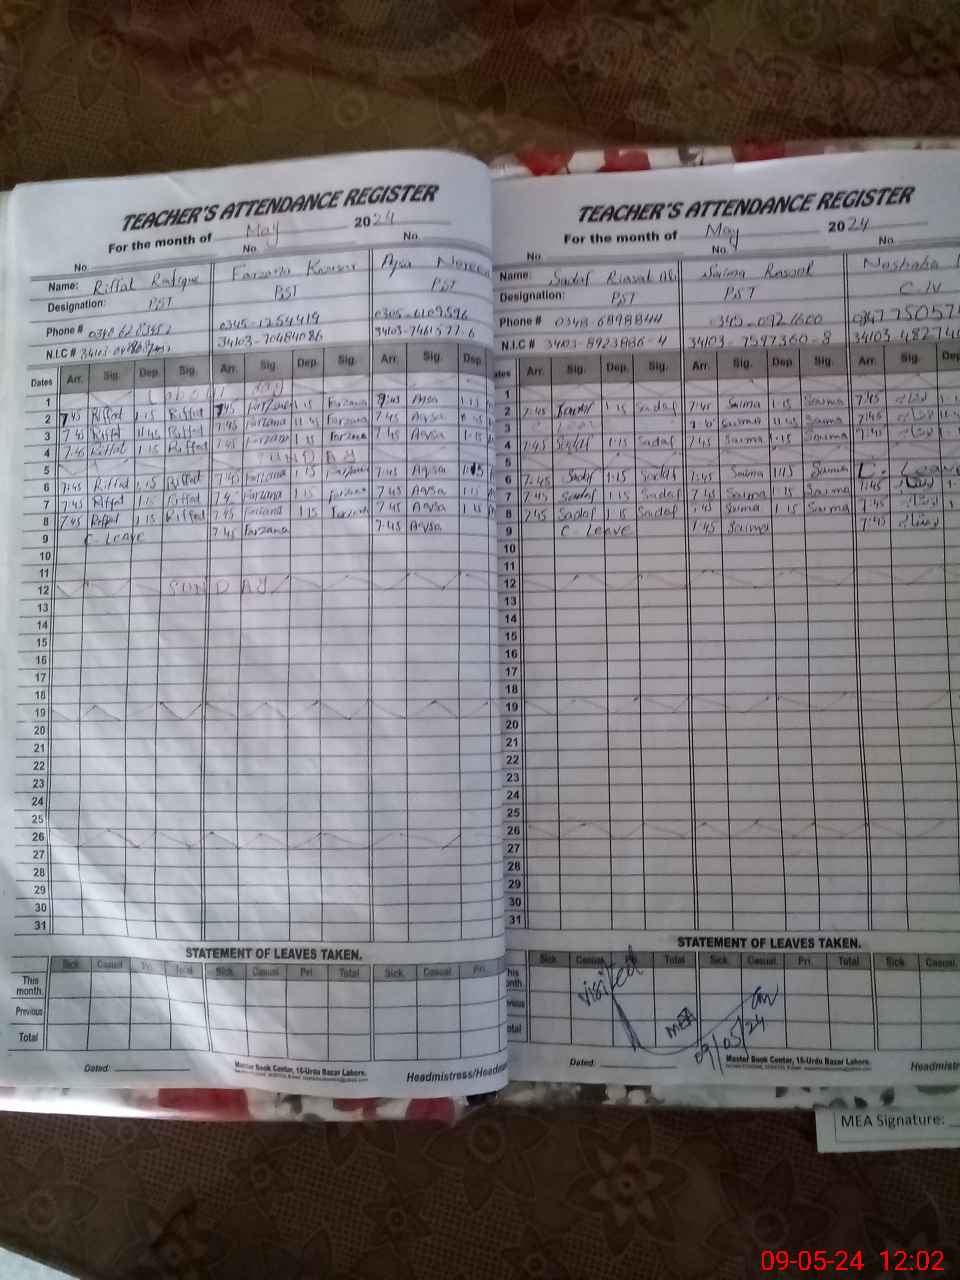 TEACHER'S ATTENDANCE REGISTER
For the month of May 2024
No. No. No.
Name: Riffat Rafique Farzana Kousar Aqsa Noreen
Designation: PST PST PST
Phone # 0345-1254419
N.I.C # 34103-7461577-6
Dates Arr. Sig. Dep. Sig. Arr. Sig. Dep. Sig. Arr. Sig. Dep.
1 Labour Day
2 7:45 Riffat 1:15 Riffat 7:45 Farzana 1:15 Farzana 7:45 Aqsa 1:15
3 7:45 Riffat 11:45 Riffat 7:45 Farzana 11:45 Farzana 7:45 Aqsa
4 7:45 Riffat 1:15 Riffat 7:45 Farzana 1:15 Farzana 7:45 Aqsa 1:15
5 SUNDAY
6 7:45 Riffat 1:15 Riffat 7:45 Farzana 1:15 Farzana 7:45 Aqsa 1:15
7 7:45 Riffat 1:15 Riffat 7:4 Farzana 1:15 Farzana 7:45 Aqsa 1:15
8 7:45 Riffat 1:15 Riffat 7:45 Farzana 1:15 Farzana 7:45 Aqsa 1:15
9 C-Leave 7:45 Farzana 7:45 Aqsa
10
11
12 SUNDAY
13
14
15
16
17
18
19
20
21
22
23
24
25
26
27
28
29
30
31
STATEMENT OF LEAVES TAKEN.
Sick. Casual. Pri. Total Sick. Casual. Pri. Total Sick. Casual. Pri.
This month.
Previous
Total
Dated:
Master Book Center, 15-Urdu Bazar Lahore.
Headmistress/Headma
TEACHER'S ATTENDANCE REGISTER
For the month of May 2024
No. No. No.
Name: Sadaf Riasat Ali Saima Rasool Noshaba
Designation: PST PST
Phone # 0348 6898844 0345-0921600 0347 75057
N.I.C # 34103-8923886-4 34103-7597360-8 34103-48274
ates Arr. Sig. Dep. Sig. Arr. Sig. Dep. Sig. Arr. Sig. Dep
1
2 7:45 Sadaf 1:15 Sadaf 7:45 Saima 1:15 Saima 7:45
3 Saima 11:45 Saima 7:45
4 7:45 Sadaf 1:15 Sadaf 7:45 Saima 1:15 Saima 7:45
5
6 7:45 Sadaf 1:15 Sadaf 7:45 Saima 1:15 Saima C. Leave
7 7:45 Sadaf 1:15 Sadaf 7:45 Saima 1:15 Saima 7:45
8 7:45 Sadaf 1:15 Sadaf :45 Saima 1:15 Saima 7:45
9 C-Leave 7:45 Saima 7:45
10
11
12
13
14
15
16
17
18
19
20
21
22
23
24
25
26
27
28
29
30
31
STATEMENT OF LEAVES TAKEN.
Sick. Casual. Total Sick. Casual. Pri. Total Sick. Casual.
visited
MEA
09/05/24
Dated:
Master Book Center, 15-Urdu Bazar Lahore.
Headmistr
MEA Signature:
09-05-24 12:02